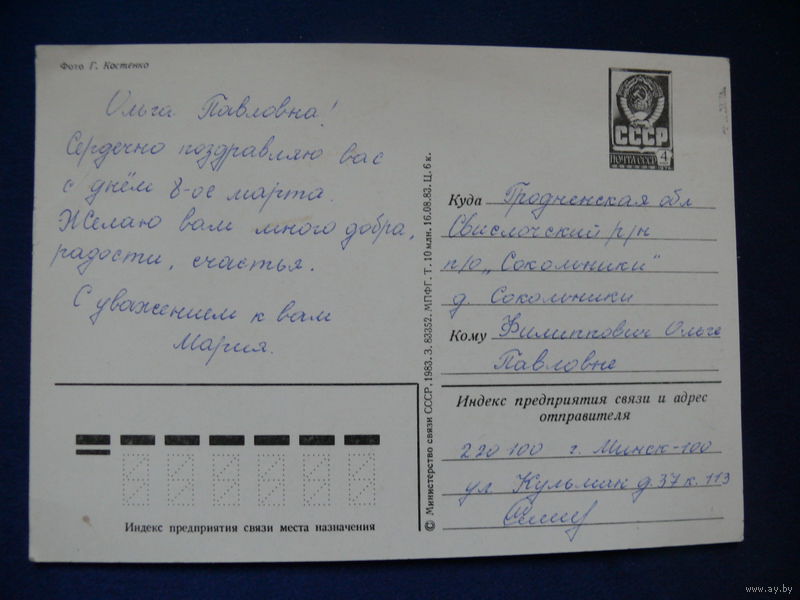 Фото Г. Костенко
Ольга Павловна!
Сердечно поздравляю вас
с днём 8-ое марта.
Желаю вам много добра,
радости, счастья.
С уважением к вам
Мария.
Индекс предприятия связи места назначения
© Министерство связи СССР. 1983. З. 83352. МПФГ. Т. 10 млн. 16.08.83. Ц. 6 к.
СССР
ПОЧТА СССР 4
Куда Гродненская обл
Свислочский р/н
п/о „Сокольники"
д. Сокольники
Кому Филиппович Ольге
Павловне
Индекс предприятия связи и адрес
отправителя
220100 г. Минск-100
ул. Кульман д. 37 к. 113
www.ay.by